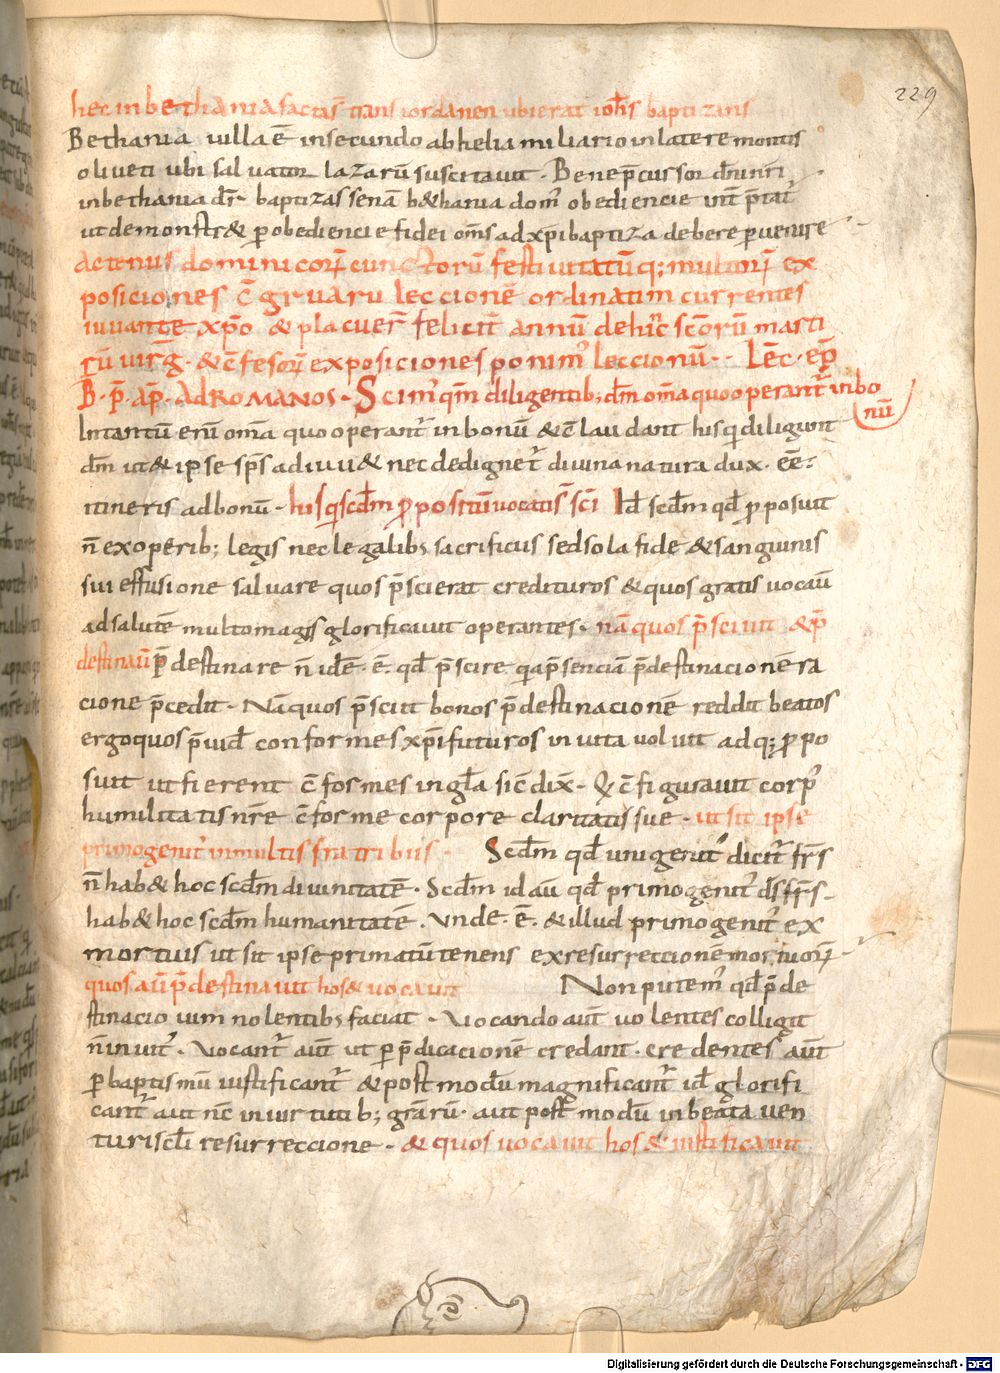 229
hec in bethania facta s̄ trans iordanen ubi erat ioh̅s baptizans
Bethania uilla ē in secundo ab helia miliario in latere montis
oliueti ubi saluator lazarū suscitauit . Bene p̄cursor dn̄i nr̄i
in bethania dr̄ . baptizasse nam b&hania dom' obediencie int̄ p̄tat'
ut demonstr& ꝑ obediencie fidei om̄s ad xp̄i baptiza debere ꝑuenire
Actenus dominicoꝝ cunctorū festiuitatūq; multoꝝ ex
posiciones c̄gruaru leccionē ordinatim currentes
iuuante xp̄o & placuer̄ felicit̄ annū dehīc sc̄orū marti
rū uirḡ . & c̄fesoꝝ exposiciones ponim' leccionū . . Lēc . ep̄
B . p̄ . ap̄ . Ad Romanos . Scim' qm̄ diligentib; dm̄ om̄a quooperant̄ in bo
nū
Intantū enī om̄a quooperant̄ in bonū & c̄laudant his qi diligunt
dm̄ ut & ipse sp̄s adiuu& nec dedignet̄ diuina natura dux . eē .
itineris ad bonū . his qi scd̄m ꝓpositum uocati s̄ sc̄i Id̄ scd̄m qd̄ ꝓposuit
n̄ ex operib; legis nec legalib; sacrificiis sed sola fide & sanguinis
sui effusione saluare quos p̄scierat credituros & quos gratis uocaū
ad salutē multo magis glorificauit operantes . nā quos p̄sciuit & p̄
destinaū p̄destinare n̄ idē . ē . qd̄ p̄scire qia p̄senciā p̄destinacionē ra
cione p̄cedit . Nā quos p̄sciit bonos p̄destinacionē reddit beatos
ergo quos p̄uid̄ conformes xp̄i futuros in uita uoluit adq; ꝓpo
suit ut fierent c̄fosmes in gl̄a sic̄ dix̄ . Qi c̄figurauit corp'
humilitatis nr̄e c̄forme corpore claritatis sue . ut sit ipse
primogenit' in multis fratribus . Scd̄m qd̄ unigenit' dicit̄ fr̄s
n̄ hab& hoc scd̄m diuinitatē . Scd̄m id aū qd̄ primogenit' dr̄ fr̄s .
hab& hoc scd̄m humanitatē . Unde . ē . & illud primogenit' ex
mortuis ut sit ipse primatū tenens ex resurreccionem mortuoꝝ .
quos aū p̄destinauit hos & uocauit Non putem' qd̄ p̄de
stinacio uim nolentib; faciat . Uocando aūt uolentes colligit
n̄ inuit' . Uocant̄ aūt ut ꝑ p̄dicacionē credant . credentes aūt
ꝑ baptismū iustificant̄ & postmodū magnificant̄ id̄ glorifi
cant̄ aut nc̄ in uirtutib; grārū . aut postmodū in beata uen
turi scl̄i resurreccione . & quos uocauit hos & iustificauit
Digitalisierung gefördert durch die Deutsche Forschungsgemeinschaft - DFG